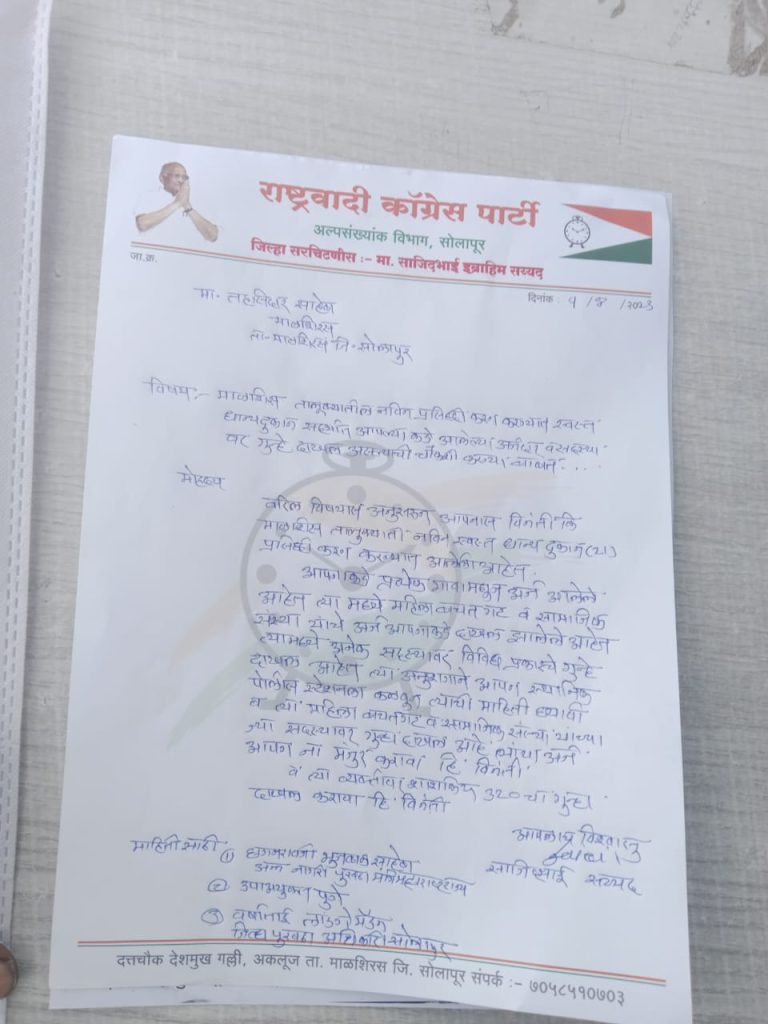 राष्ट्रवादी काँग्रेस पार्टी
अल्पसंख्यांक विभाग, सोलापूर
जिल्हा सरचिटणीस :- मा. साजिदभाई इब्राहिम सय्यद
जा.क्र.
दिनांक १ / ४ /२०२३
मा. तहसिलदार साहेब
माळशिरस
ता-माळशिरस जि-सोलापुर
विषय:- माळशिरस तालुक्यातील नविन प्रसिध्दी करण करण्यात स्वस्त
धान्य दुकान संदर्भात आपल्या कडे आलेल्या अर्जदार व सदस्या
वर गुन्हे दाखल असल्याची चौकशी करण्या बाबत...
मोहदय
वरिल विषयास अनुसरून आपनास विनंती कि
माळशिरस तालुक्याती नविन स्वस्त धान्य दुकान(चा)
प्रसिध्दी करण करण्यात आलेला आहेत.
आपणाकडे प्रत्येक गावामधुन अर्ज आलेले
आहेत त्या मध्ये महिला बचत गट व सामाजिक
संस्था यांचे अर्ज आपनाकडे दाखल झालेले आहेत
त्यामध्ये अनेक सदस्यावर विविध प्रकारचे गुन्हे
दाखल आहेत त्या अनुशंगाने आपन स्थानिक
पोलीस स्टेशनला कळवून त्याची माहिती घ्यावी
व त्या महिला बचतगट व सामाजिक संस्था यांच्या
ज्या सदस्यावर गुन्हा दाखल आहे त्यांचा अर्ज
आपण ना मंजुर करावा हि विनंती
व त्या व्यक्तीवर शासकिय ४२० चा गुन्हा
दाखल करावा हि विनंती
आपलाच विश्वासु
साजिदभाई सय्यद
माहिती साठी ① छगनरावजी भुजबळ साहेब
अन्न नागरी पुरवठा मंत्री महाराष्ट्र राज्य
② उपआयुक्त पुणे
③ वर्षाताई लांडगे मॅडम
जिल्हा पुरवठा अधिकारी सोलापुर
दत्तचौक देशमुख गल्ली, अकलूज ता. माळशिरस जि. सोलापूर संपर्क :- ७०५८५१०७०३